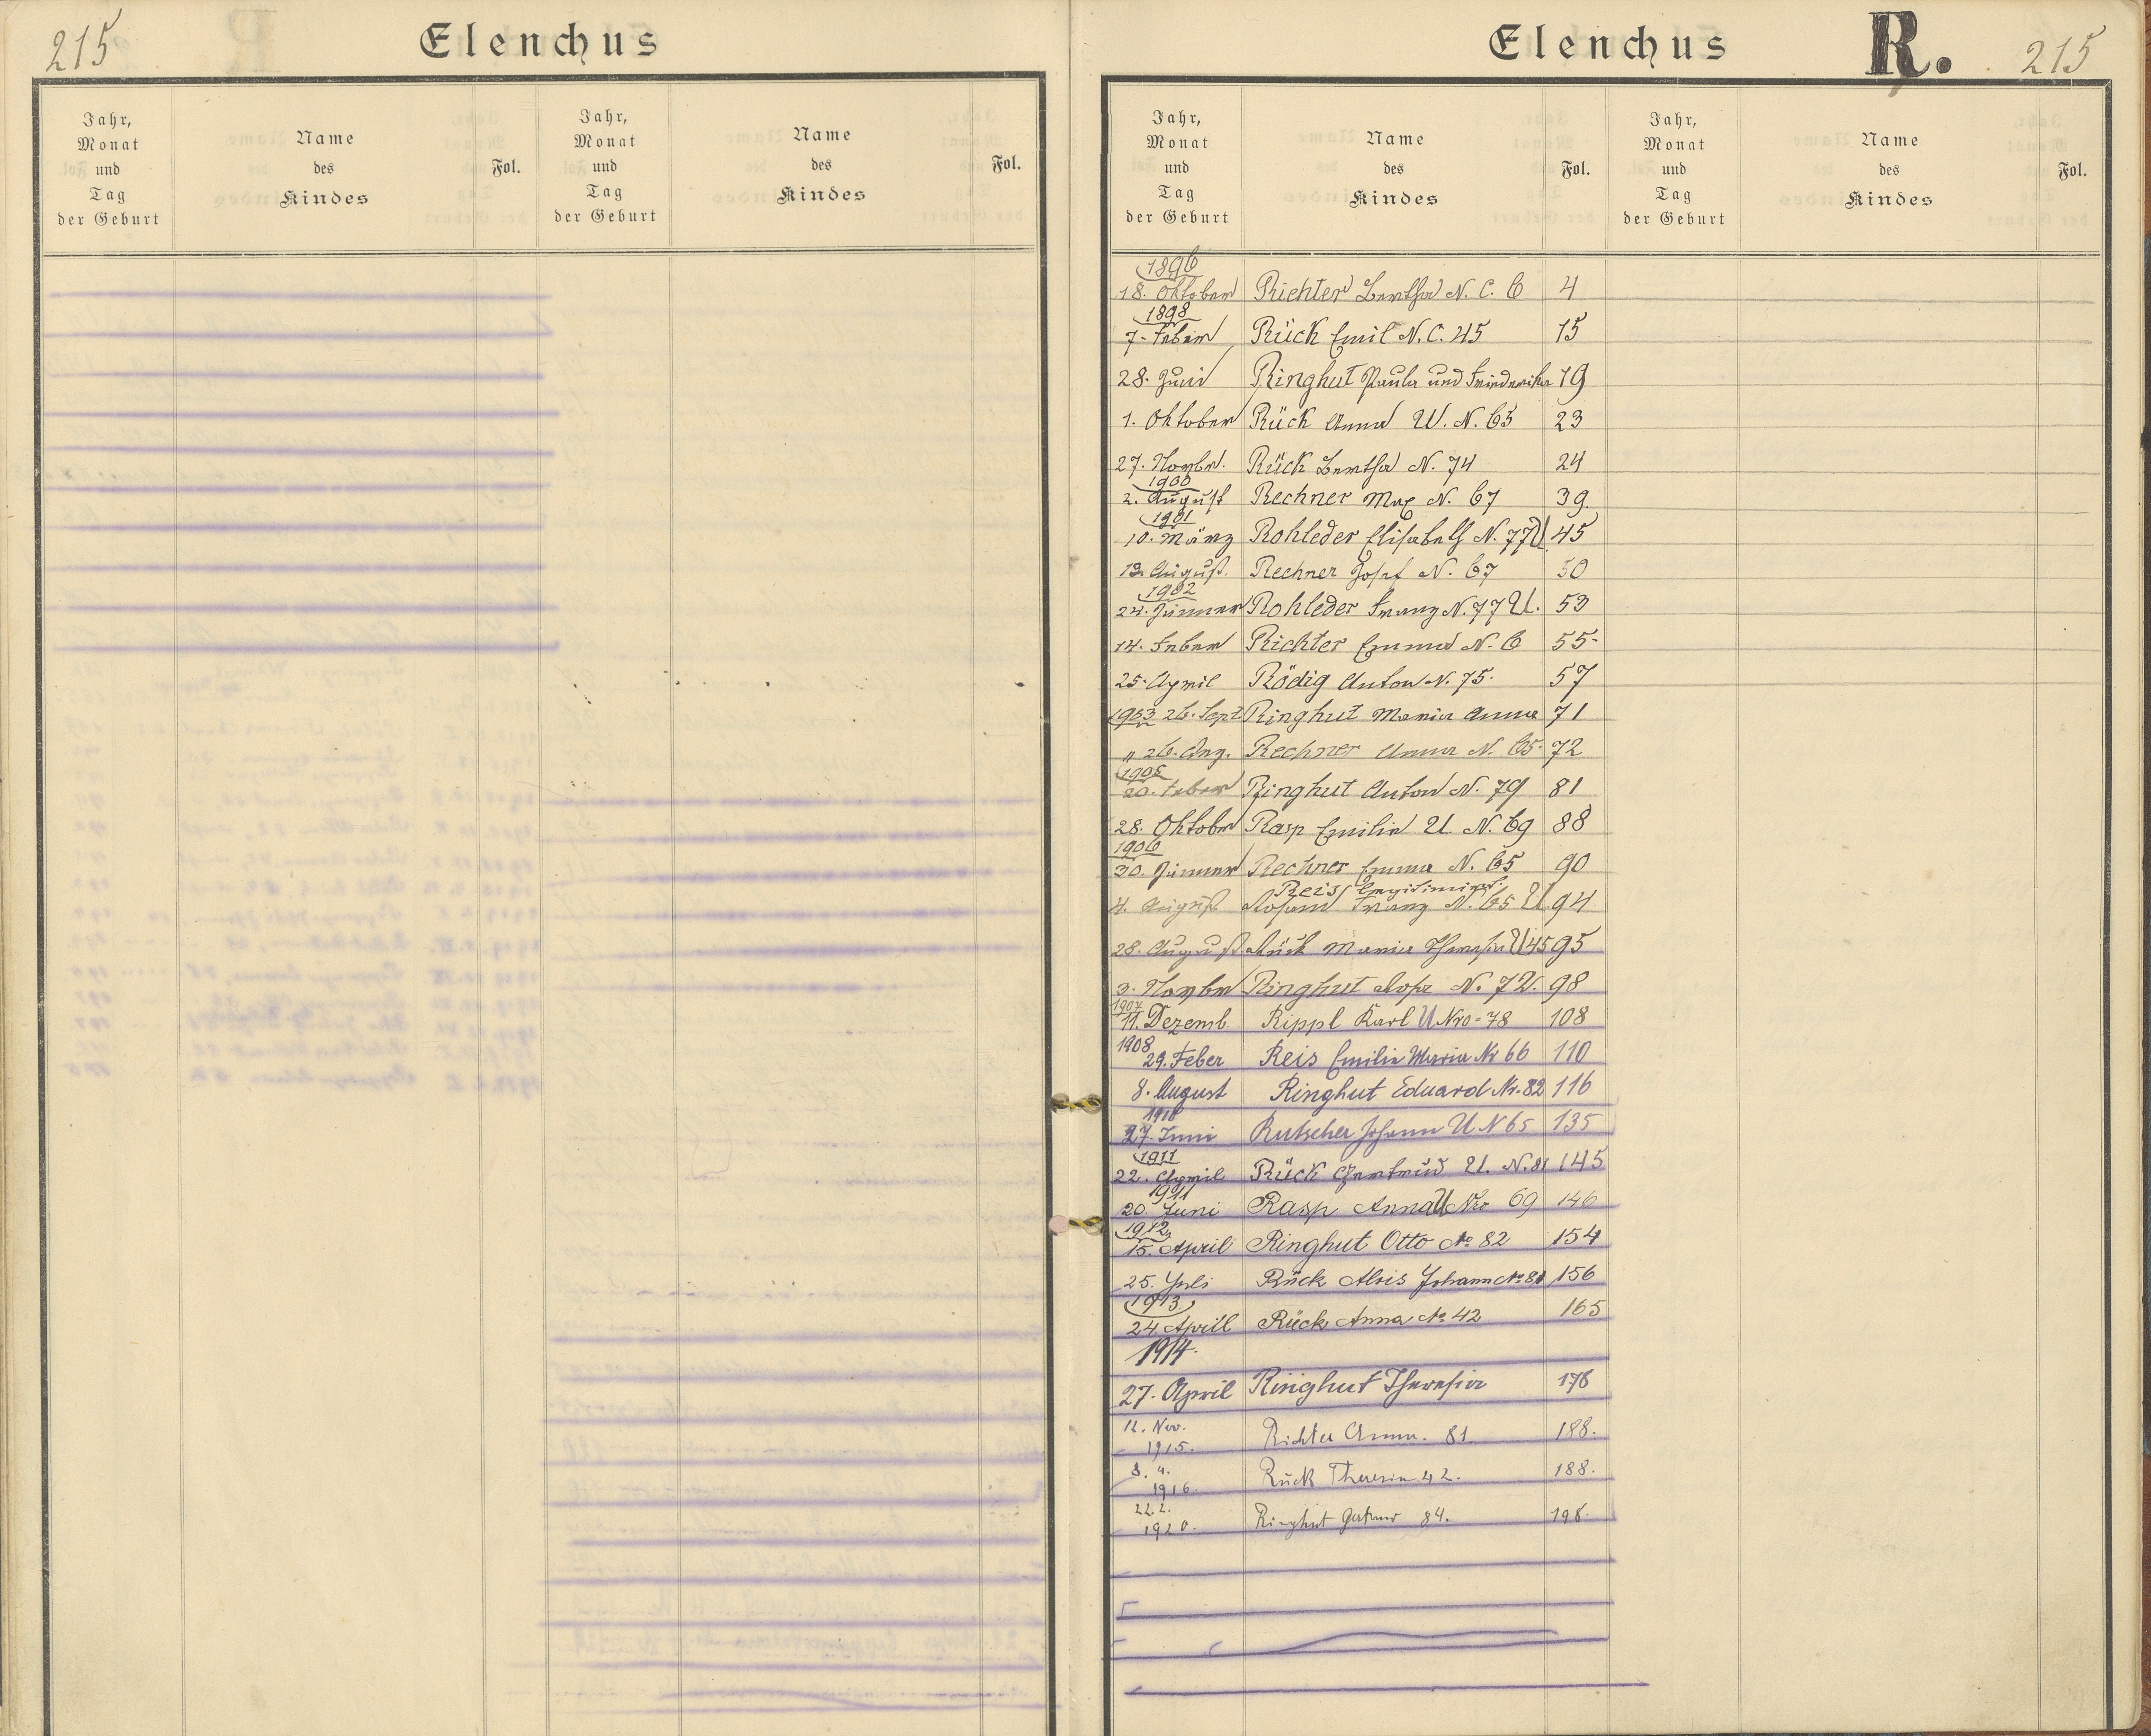 215
Elenchus
Jahr,
Monat
und
Tag
der Geburt
Name
des
Kindes
Fol.
Jahr,
Monat
und
Tag
der Geburt
Name
des
Kindes
Fol.
Elenchus R. 215
Jahr,
Monat
und
Tag
der Geburt
Name
des
Kindes
Fol.
Jahr,
Monat
und
Tag
der Geburt
Name
des
Kindes
Fol.
1896
18. Oktober Richter Bertha N. C. 6 4
1898
7. Feber Rück Emil N. C. 45 15
28. Juni Ringhut Paula und Friederika 19
1. Oktober Rück Anna U. N. 65 23
27. Novbr. Rück Bertha N. 74 24
1900
2. August Rechner Max N. 67 39.
1901
10. März Rohleder Elisabeth N. 77 U 45
13. August. Rechner Josef N. 67 50
1902
24. Jänner Rohleder Franz N. 77 U. 53
14. Feber Richter Emma N. 6 55
25. April Rödig Anton N. 75. 57
1903 26. Sept Ringhut Maria Anna 71
" 26. Rechner Anna N. 65 72
1905
20. Feber Ringhut Anton N. 79 81
28. Oktobr Rasp Emilia U. N. 69 88
1906
30. Jänner Rechner Emma N. 65 90
Reis legitimirt
4. August Franz N. 65 U 94
28. August Rück Maria Theresia U 45 95
3. Novbr Ringhut Rosa N. 72. 98
1907
11. Dezemb Rippl Karl U Nro 78 108
1908
29. Feber Reis Emilie Maria Nr 66 110
8. August Ringhut Eduard Nr. 82 116
1910
27. Juni Rutscher Johann U N 65 135
1911
22. April Rück Gertrud U. N. 81 145
1911
20 Juni Rasp Anna U Nro 69 146
1912
15. April Ringhut Otto No 82 154
25. Juli Rück Alois Johann No 81 156
1913.
24 Aprill Rück Anna No 42 165
1914.
27. April Ringhut Theresia 178
12. Nov.
1915. Richter Anna. 81. 188.
8. 4.
1916. Rück Theresia 42. 188.
22. 2.
1920. Ringhut 84. 198.